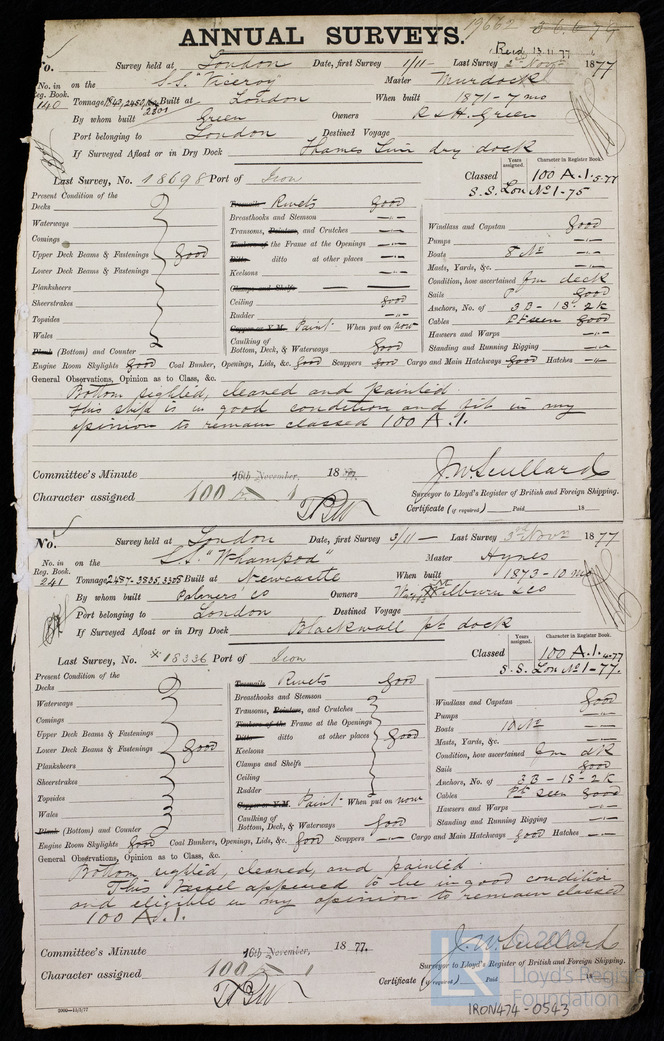 19662
ANNUAL SURVEYS.
Recd 13.11.77
No. Survey held at London Date, first Survey 1/11 – Last Survey 2nd Novr 1877
No. in Reg. Book. on the S.S. "Viceroy" Master Murdock
140 Tonnage Built at London When built 1871 - 7 mo
2201
By whom built Green Owners R & H. Green
Port belonging to London Destined Voyage
If Surveyed Afloat or in Dry Dock Thames dry dock
Years assigned. Character in Register Book.
Last Survey, No. 18698 Port of Iron Classed 100 A.1. 5-77
S.S. Lon No 1-75
Present Condition of the
Decks
Waterways
Comings
Upper Deck Beams & Fastenings good
Lower Deck Beams & Fastenings
Planksheers
Sheerstrakes
Topsides
Wales
Plank (Bottom) and Counter
Treenails Rivets good
Breasthooks and Stemson
Transoms, Pointers, and Crutches
Timbers of the Frame at the Openings
Ditto ditto at other places
Keelsons
Clamps and Shelfs
Ceiling good
Rudder
Copper or Y.M. Paint When put on now
Caulking of Bottom, Deck, & Waterways Good
Windlass and Capstan Good
Pumps
Boats 8 No
Masts, Yards, &c.
Condition, how ascertained fm deck
Sails Good
Anchors, No. of 3B - 1S. 2K
Cables Pt seen good
Hawsers and Warps
Standing and Running Rigging
Engine Room Skylights Good Coal Bunker, Openings, Lids, &c. Good Scuppers good Cargo and Main Hatchways Good Hatches
General Observations, Opinion as to Class, &c.
Bottom sighted, cleaned and painted.
This ship is in good condition and fit in my
opinion to remain classed 100 A.1.
Committee's Minute 16th November, 1877.
Character assigned 100 A 1
J.W. Scullard
Surveyor to Lloyd's Register of British and Foreign Shipping.
Certificate (if required) Paid 18
No. Survey held at London Date, first Survey 3/11 – Last Survey 3rd Novr 1877
No. in Reg. Book. on the S.S. "Whampoa" Master Hynes
241 Tonnage 2457-3835.3305 Built at Newcastle When built 1873 - 10 mo
By whom built Palmers Co Owners Wm Milburn & Co
Port belonging to London Destined Voyage
If Surveyed Afloat or in Dry Dock Blackwall pt dock
Years assigned. Character in Register Book.
Last Survey, No. 18336 Port of Iron Classed 100 A.1. 4-77
S.S. Lon No 1-77.
Present Condition of the
Decks
Waterways
Comings
Upper Deck Beams & Fastenings
Lower Deck Beams & Fastenings good
Planksheers
Sheerstrakes
Topsides
Wales
Plank (Bottom) and Counter
Treenails Rivets Good
Breasthooks and Stemson
Transoms, Pointers, and Crutches
Timbers of the Frame at the Openings
Ditto ditto at other places Good
Keelsons
Clamps and Shelfs
Ceiling
Rudder
Copper or Y.M. Paint When put on now
Caulking of Bottom, Deck, & Waterways good
Windlass and Capstan Good
Pumps
Boats 10 No
Masts, Yards, &c.
Condition, how ascertained fm dk
Sails good
Anchors, No. of 3B - 1S - 2K
Cables Pt seen Good
Hawsers and Warps
Standing and Running Rigging
Engine Room Skylights Good Coal Bunkers, Openings, Lids, &c. Good Scuppers Cargo and Main Hatchways good Hatches
General Observations, Opinion as to Class, &c.
Bottom, sighted, cleaned, and painted.
This Vessel appeared to be in good condition
and eligible in my opinion to remain classed
100 A.1.
Committee's Minute 16th November, 1877.
Character assigned 100 A 1
J.W. Scullard
Surveyor to Lloyd's Register of British and Foreign Shipping.
Certificate (if required) Paid 18
© 2019
Lloyd's Register
Foundation
2000—15/3/77
IRON474-0543